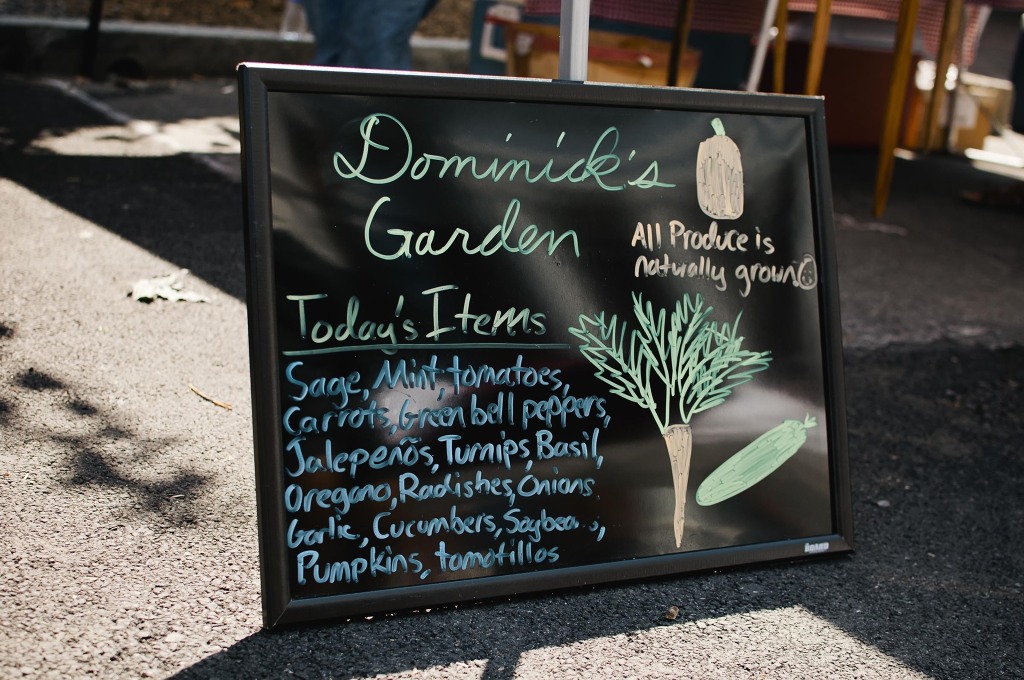 Dominick's
Garden
All Produce is
naturally grown
Today's Items
Sage, Mint, tomatoes,
Carrots, Green bell peppers,
Jalepeños, Turnips, Basil,
Oregano, Radishes, Onions
Garlic, Cucumbers,
Pumpkins, tomotillos